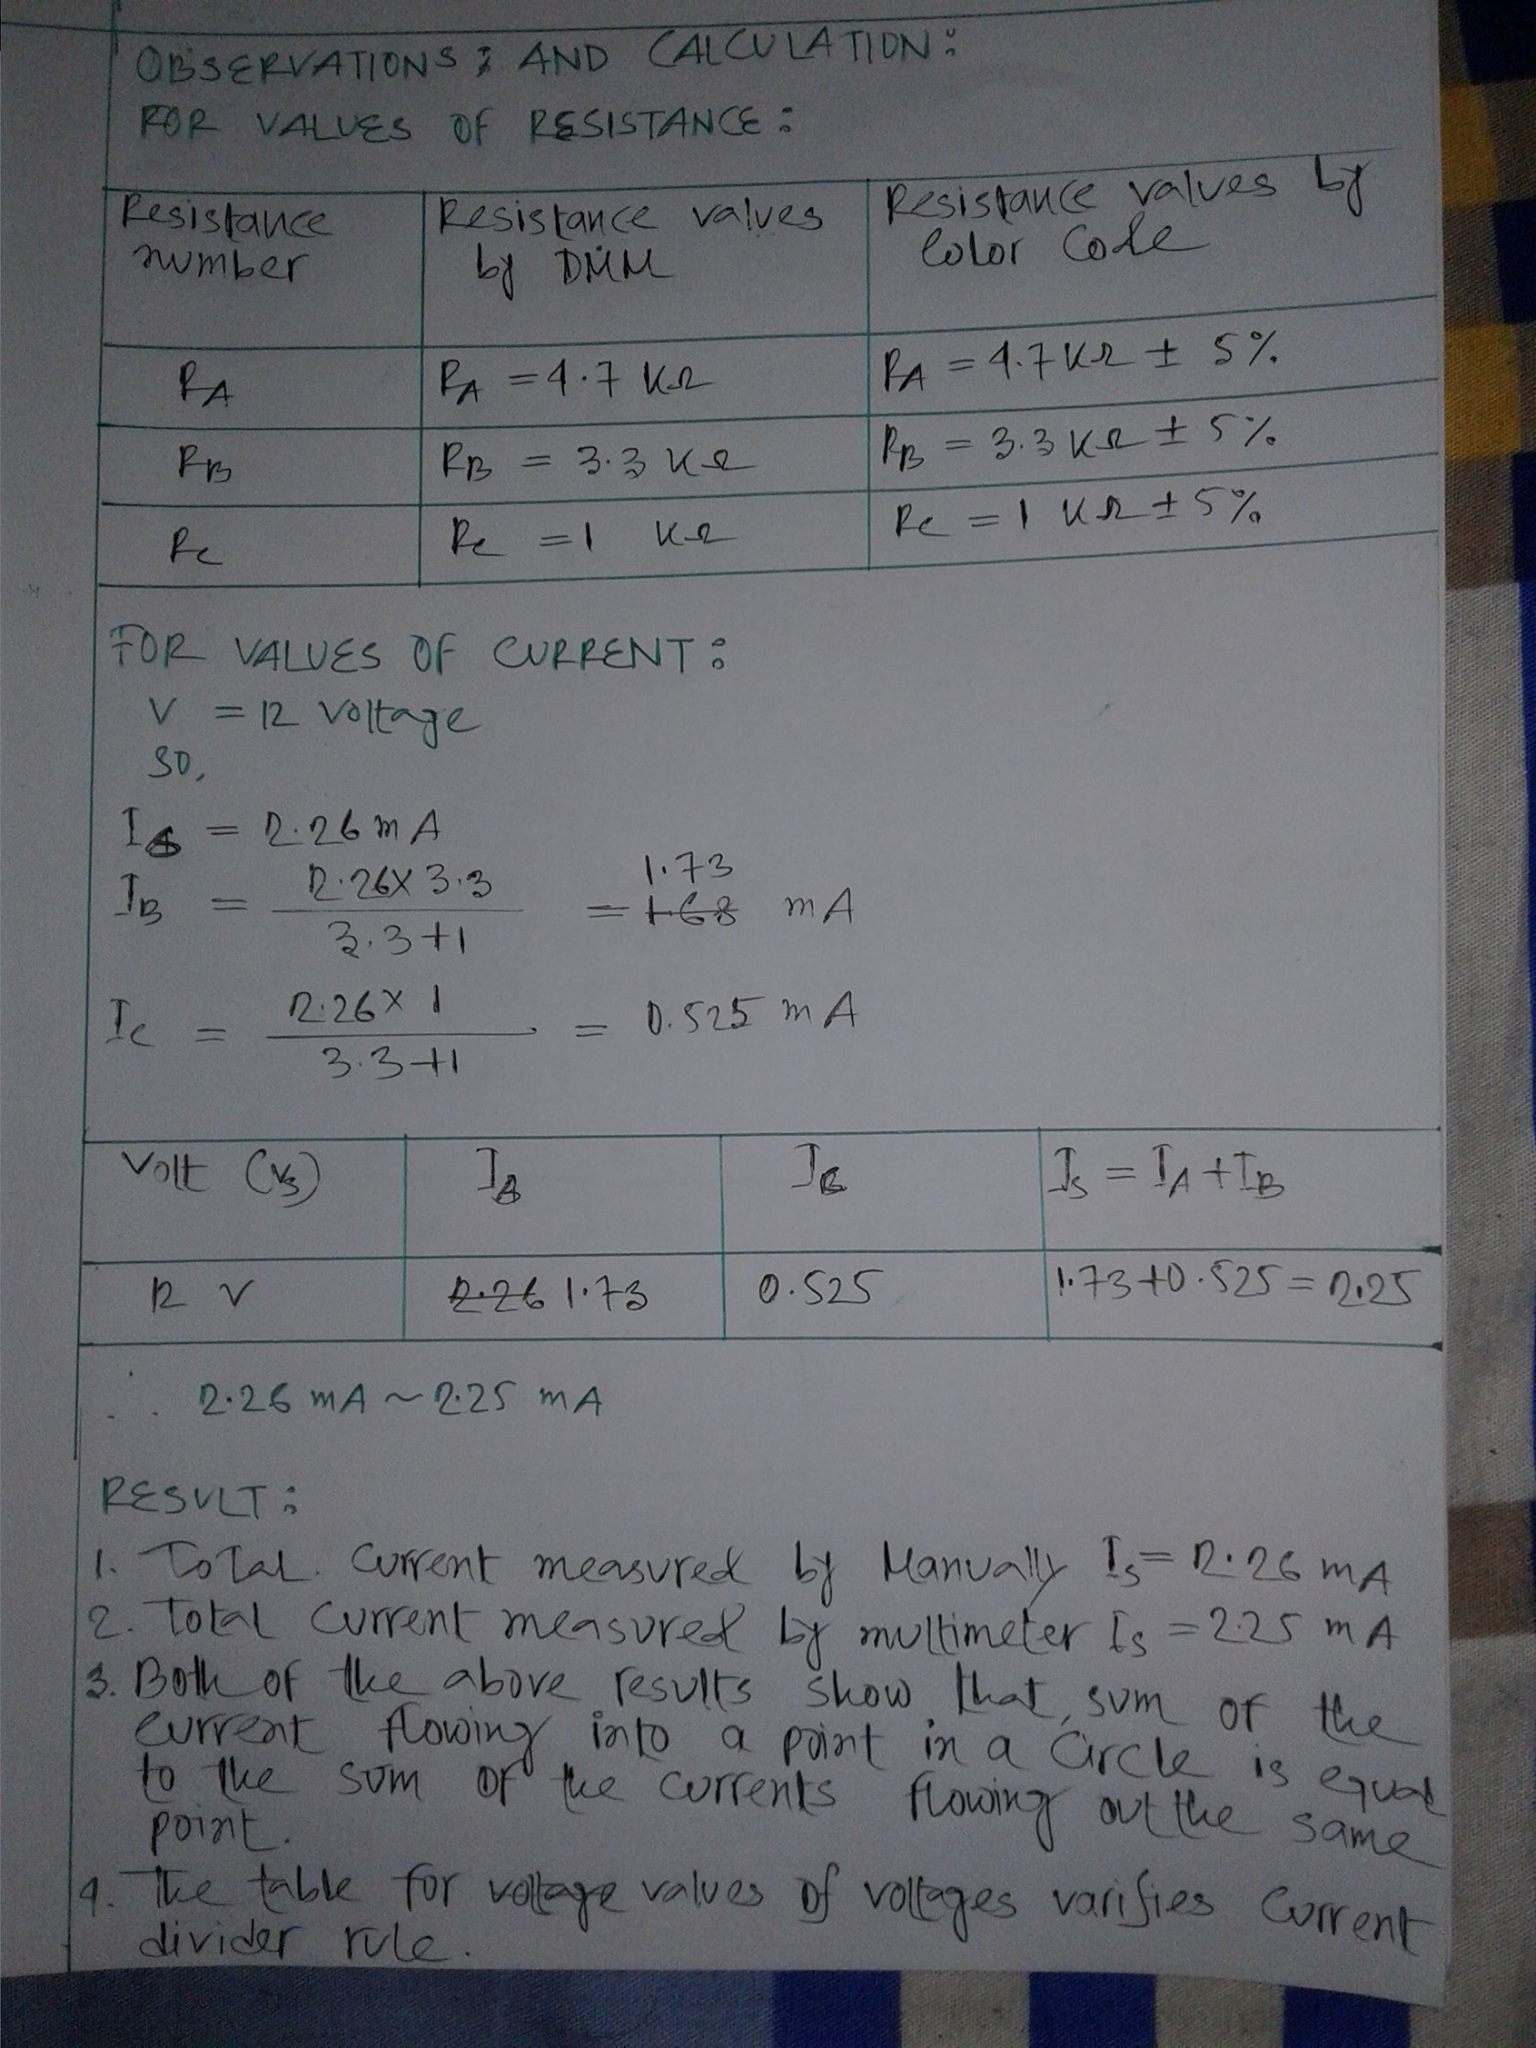 OBSERVATIONS : AND CALCULATION :
FOR VALUES OF RESISTANCE :
Resistance number | Resistance values by DMM | Resistance values by Color Code
RA | RA = 4.7 KΩ | RA = 4.7 KΩ ± 5%
RB | RB = 3.3 KΩ | RB = 3.3 KΩ ± 5%
Rc | Rc = 1 KΩ | Rc = 1 KΩ ± 5%
FOR VALUES OF CURRENT :
V = 12 Voltage
SO,
I = 2.26 mA
IB = 2.26 x 3.3 / 3.3+1 = 1.73 1.68 mA
Ic = 2.26 x 1 / 3.3+1 = 0.525 mA
Volt (Vs) | I | I | Is = IA + IB
12 V | 2.26 1.73 | 0.525 | 1.73+0.525 = 2.25
∴ 2.26 mA ~ 2.25 mA
RESULT :
1. Total current measured by Manually Is = 2.26 mA
2. Total current measured by multimeter Is = 2.25 mA
3. Both of the above results show that sum of the
current flowing into a point in a Circle is equal
to the sum of the currents flowing out the same
point.
4. The table for voltage values of voltages varifies Current
divider rule.